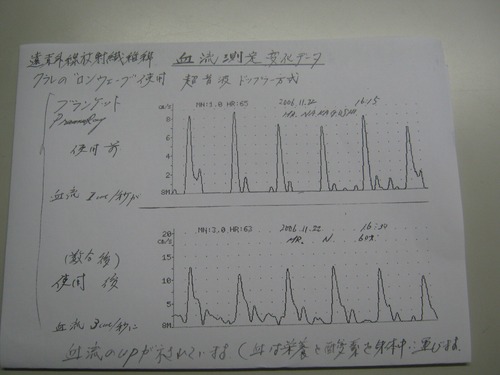 遠赤外線放射繊維 血流測定変化データ
クラレの"ロンウェーブ使用 超音波ドップラー方式
ブランケット
使用前
CM/S
MN:1.0 HR:65 2006.11.22 16:15
MR.
8
6
4
2
8M
血流 1cm/秒が
20
CM/S
15
10
5
8M
MN:3.0 HR:63 2006.11.22
MR. N. 60才
使用後
血流 3cm/秒に
血流のUPが示されています。(血は栄養と酸素を体中に運びます。